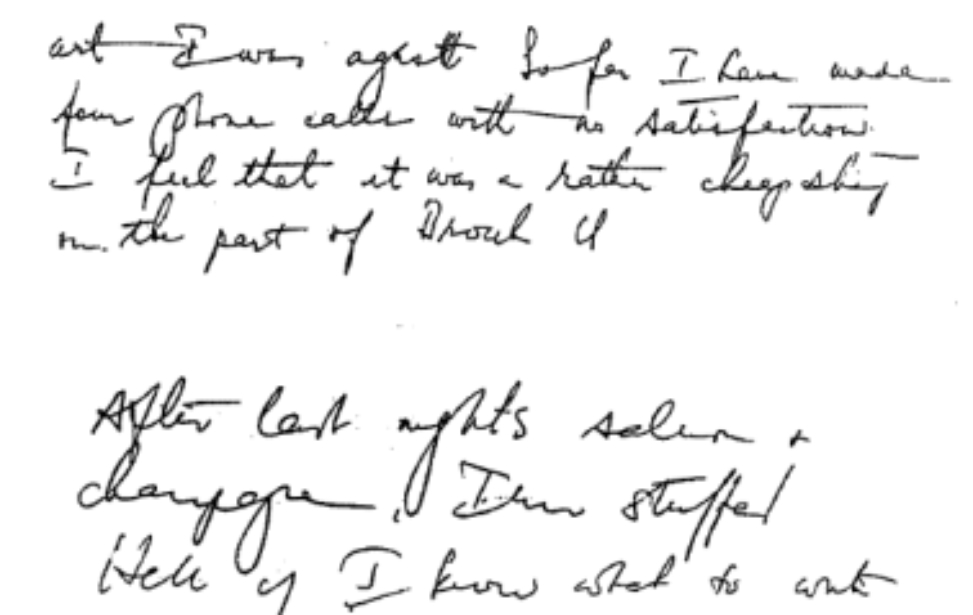 art I was aghast So far I have made
four phone calls with no satisfaction.
I feel that it was a rather cheap
on the part of U
After last nights salmon +
champagne, I am stuffed
Hell if I know what to write